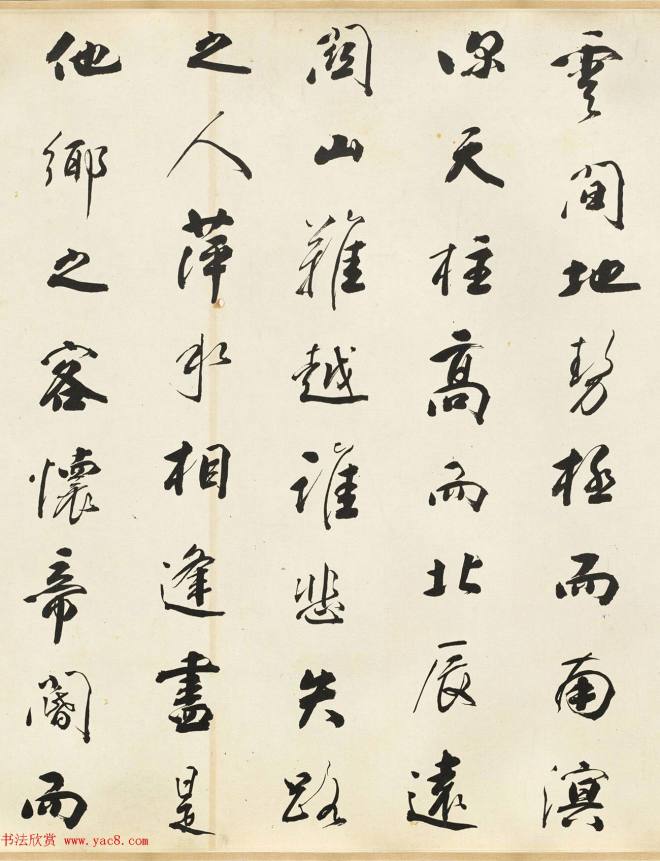 雲間地勢極而南溟
深天柱高而北辰遠
關山難越誰悲失路
之人萍水相逢盡是
他鄉之客懷帝閽而
书法欣赏 www.yac8.com